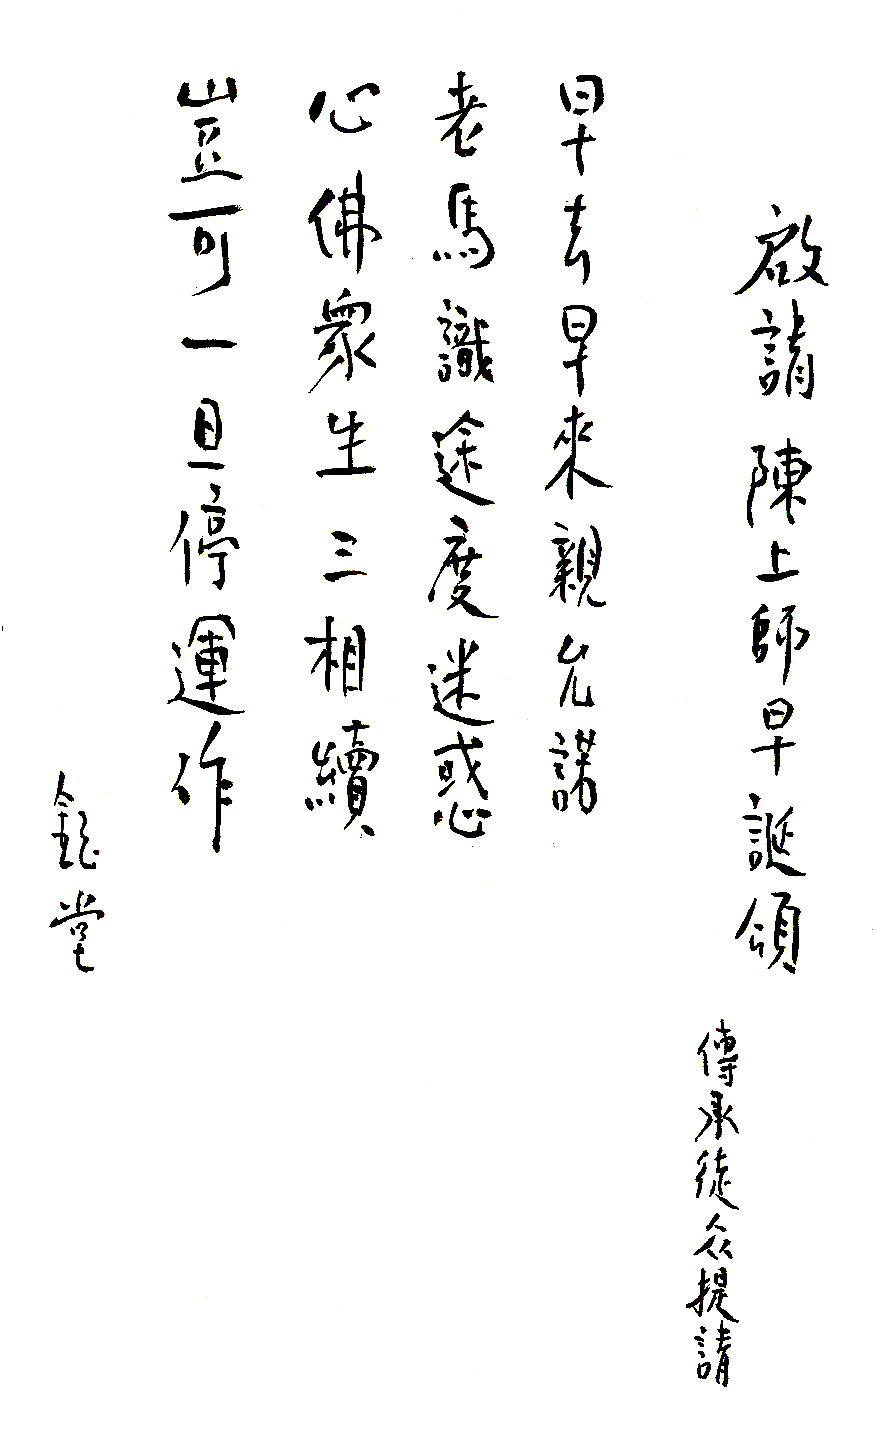 啟請 陳上師早誕頌
傳承徒眾提請
早去早來親允諾
老馬識途度迷惑
心佛眾生三相續
豈可一旦停運作
鈺堂